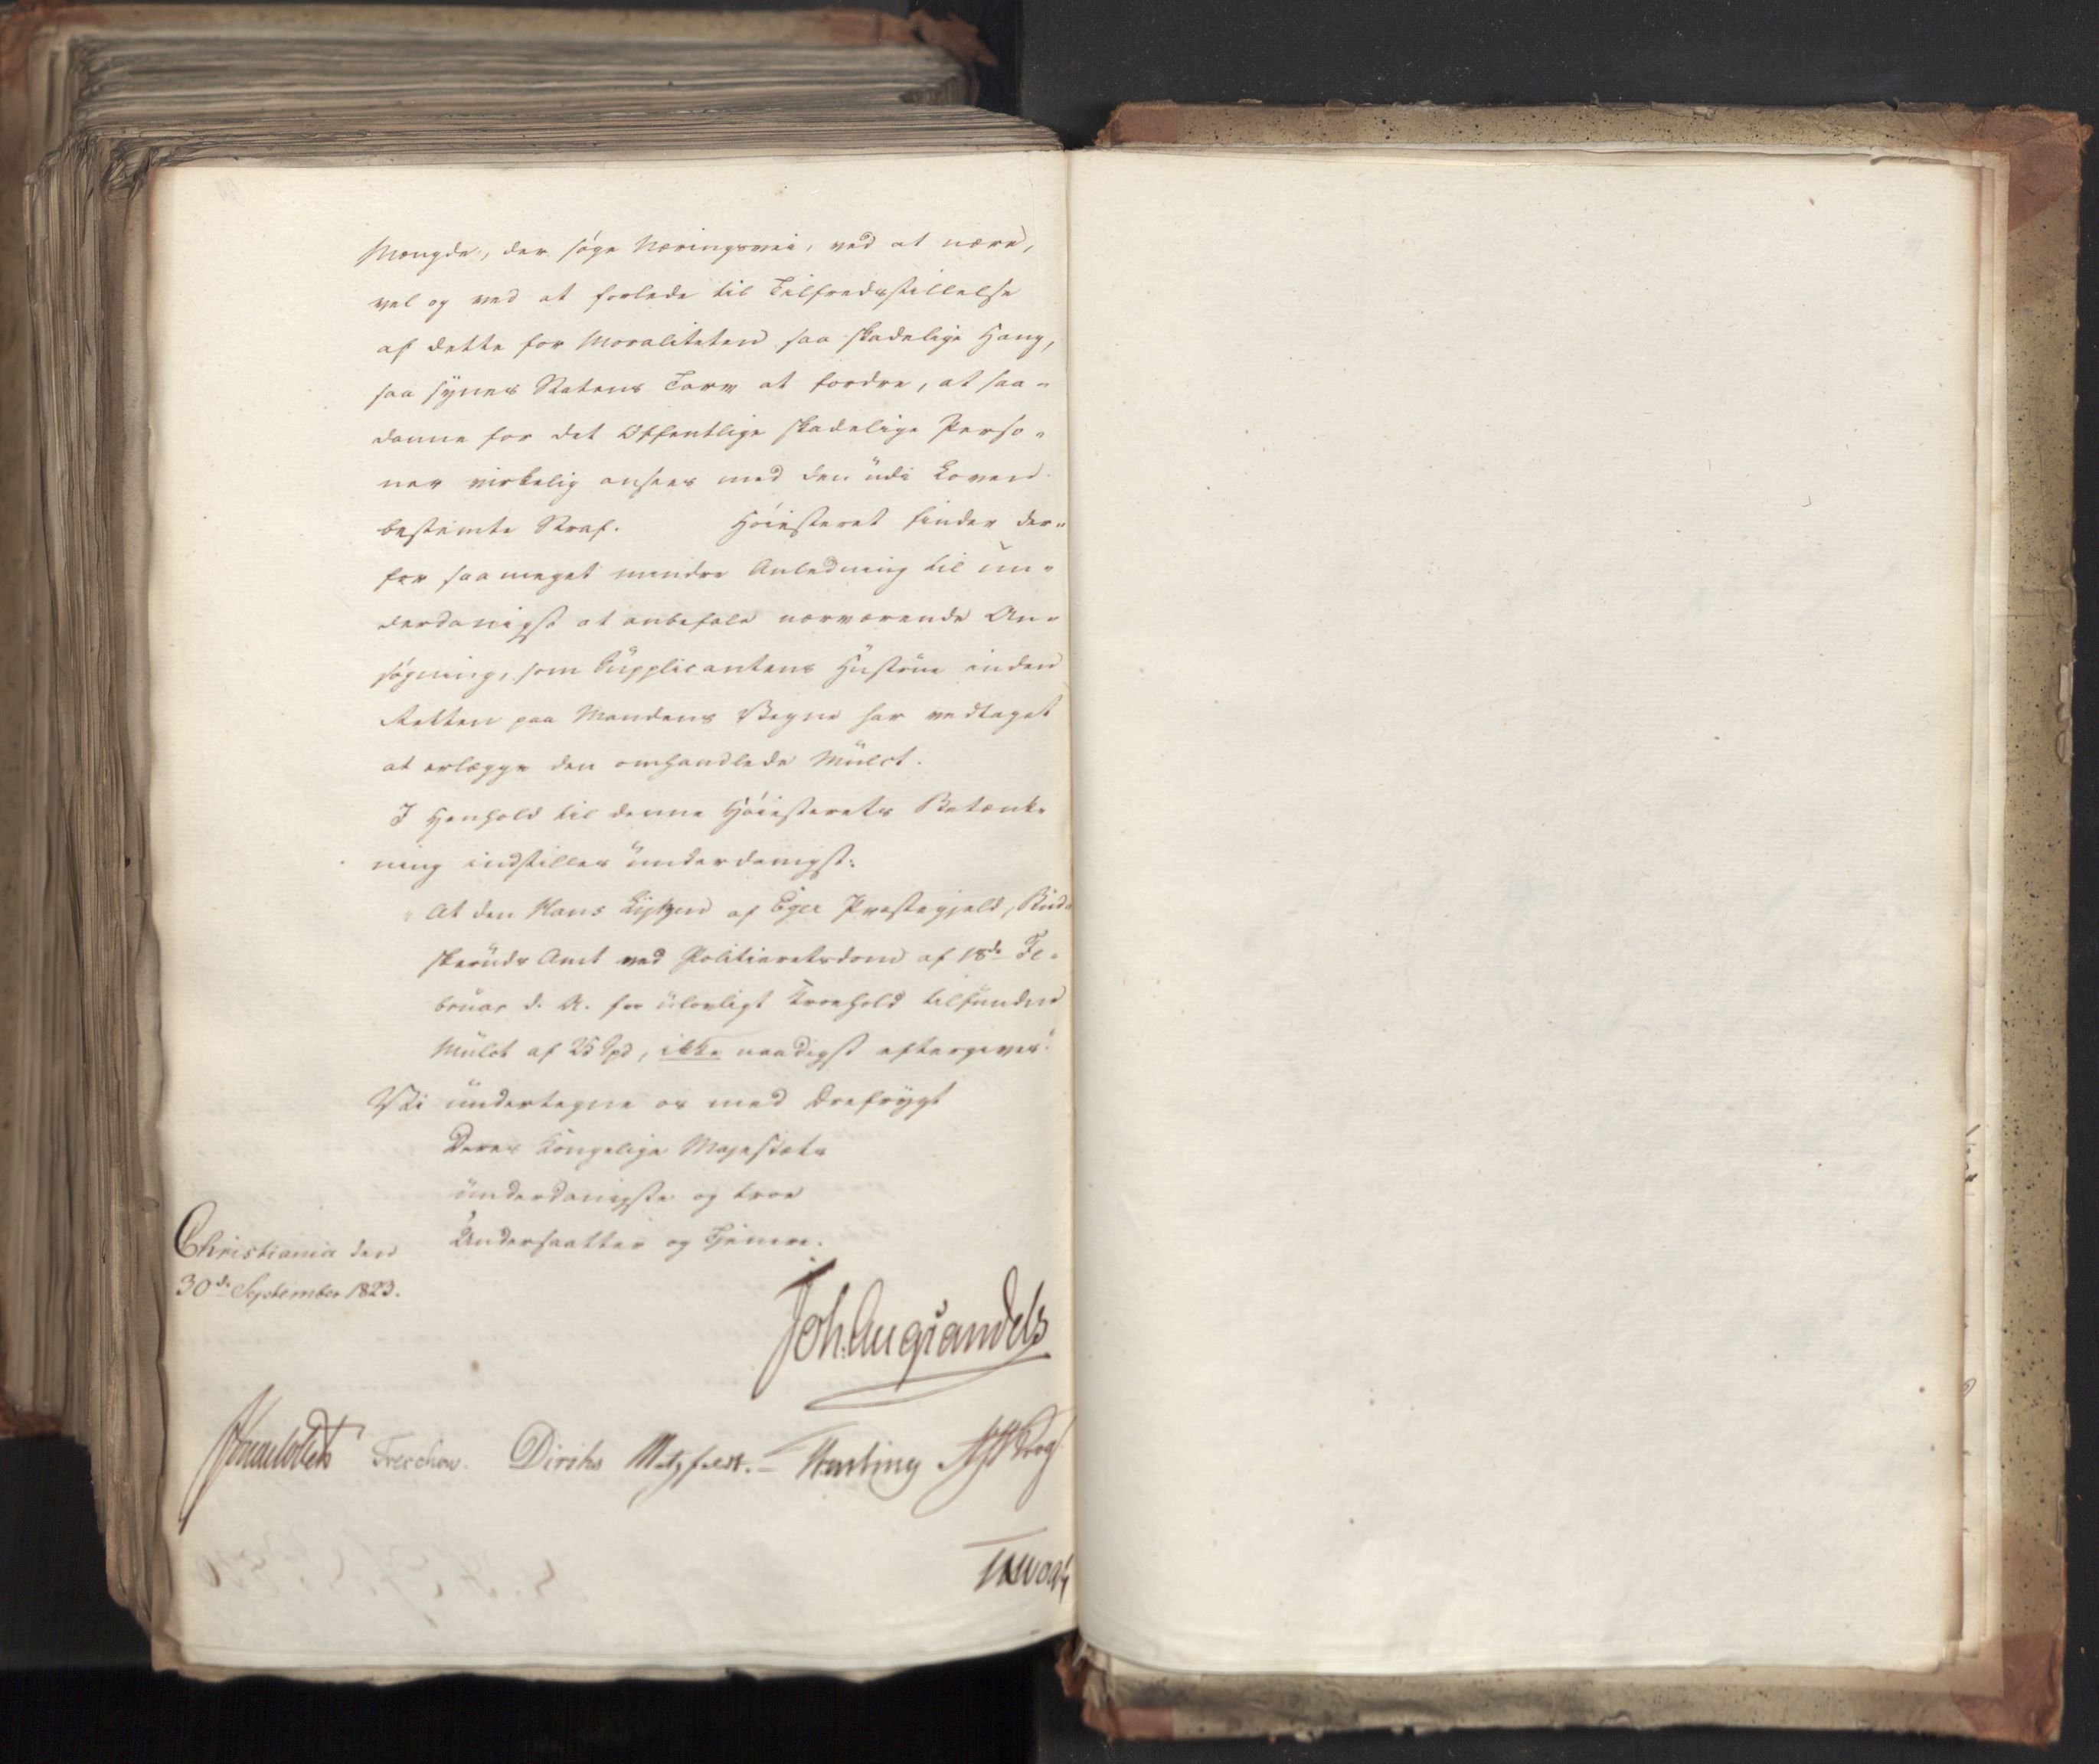 Mængde, der søge Næringsvei, ved at nære,
vel og ved at forlede til Tilfredsstillelse
af dette for Moraliteten saa skadelige Hang,
saa synes Statens Tarv at fordre, at saa-
danne for det Offentlige skadelige Perso-
ner virkelig ansees med den udi Loven
bestemte Straf. Høiesteret finder der-
for saa meget mindre Anledning til un-
derdanigst at anbefale nærværende An-
søgning, som Supplicantens Hustrue inden
Retten paa Mandens Vegne har vedtaget
at erlægge den omhandlede Mulct.
I Henhold til denne Høiesterets Betænk-
ning indstilles underdanigst:
"At den Hans af Eger Præstegjeld, Bud-
skeruds Amt ved Politieretsdom af 18de Fe-
bruar d. A. for ulovligt Kroehold tilfundne
Mulct af 25 Spd, ikke naadigst eftergives."
Vi undertegne os med Ærefrygt
Deres Kongelige Majestæts
underdanigste og troe
Undersaatter og Tjenere.
Christiania den
30de September 1823.
Joh. Aug. Sandels
Treschow. Diriks Motzfeldt. Krog